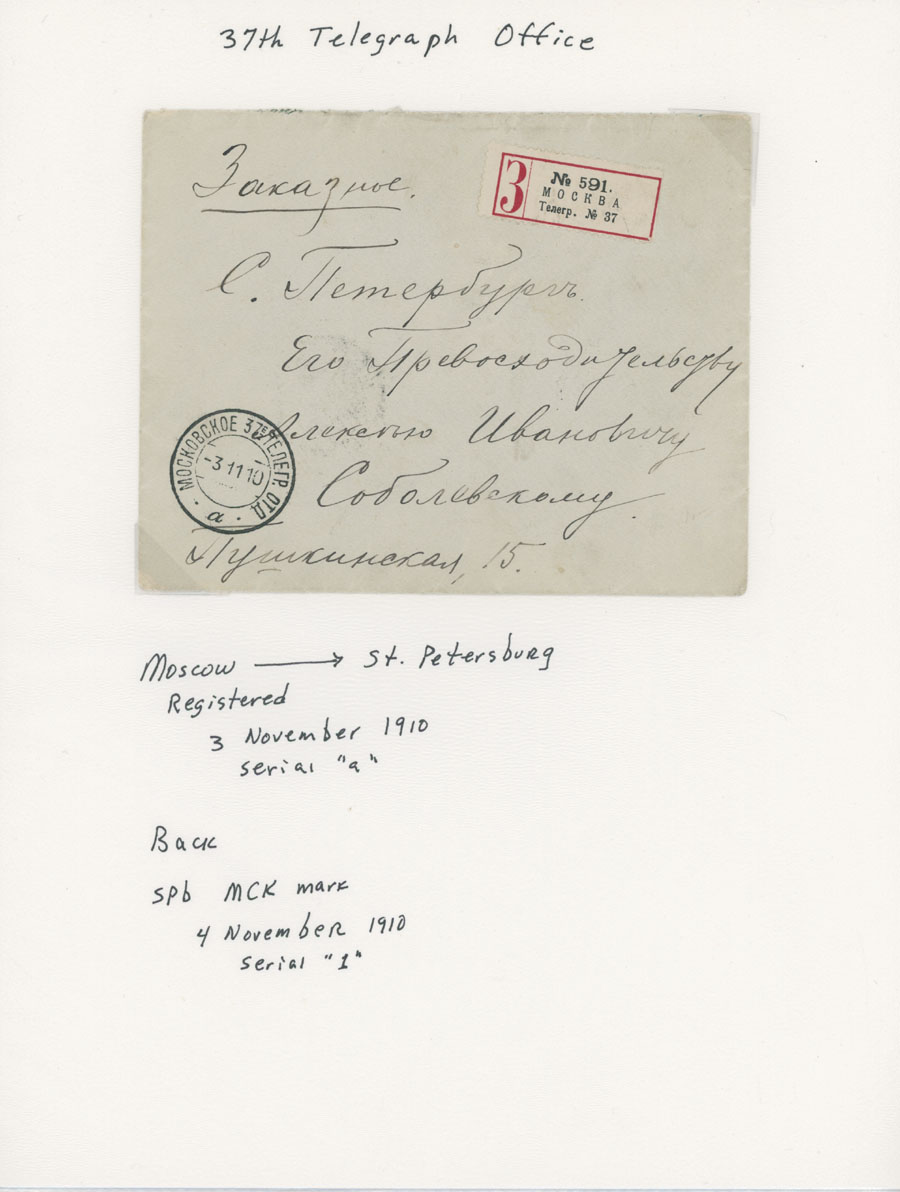 37th Telegraph Office
Заказное.
З
№ 591.
МОСКВА
Телегр. № 37
С. Петербургъ.
Его Превосходительству
Алексѣю Ивановичу
Соболевскому
Пушкинская, 15.
МОСКОВСКОЕ 37Е ТЕЛЕГР. ОТД
-3.11.10
а
Moscow → St. Petersburg
Registered
3 November 1910
serial "a"
Back
SPb MCK mark
4 November 1910
serial "1"